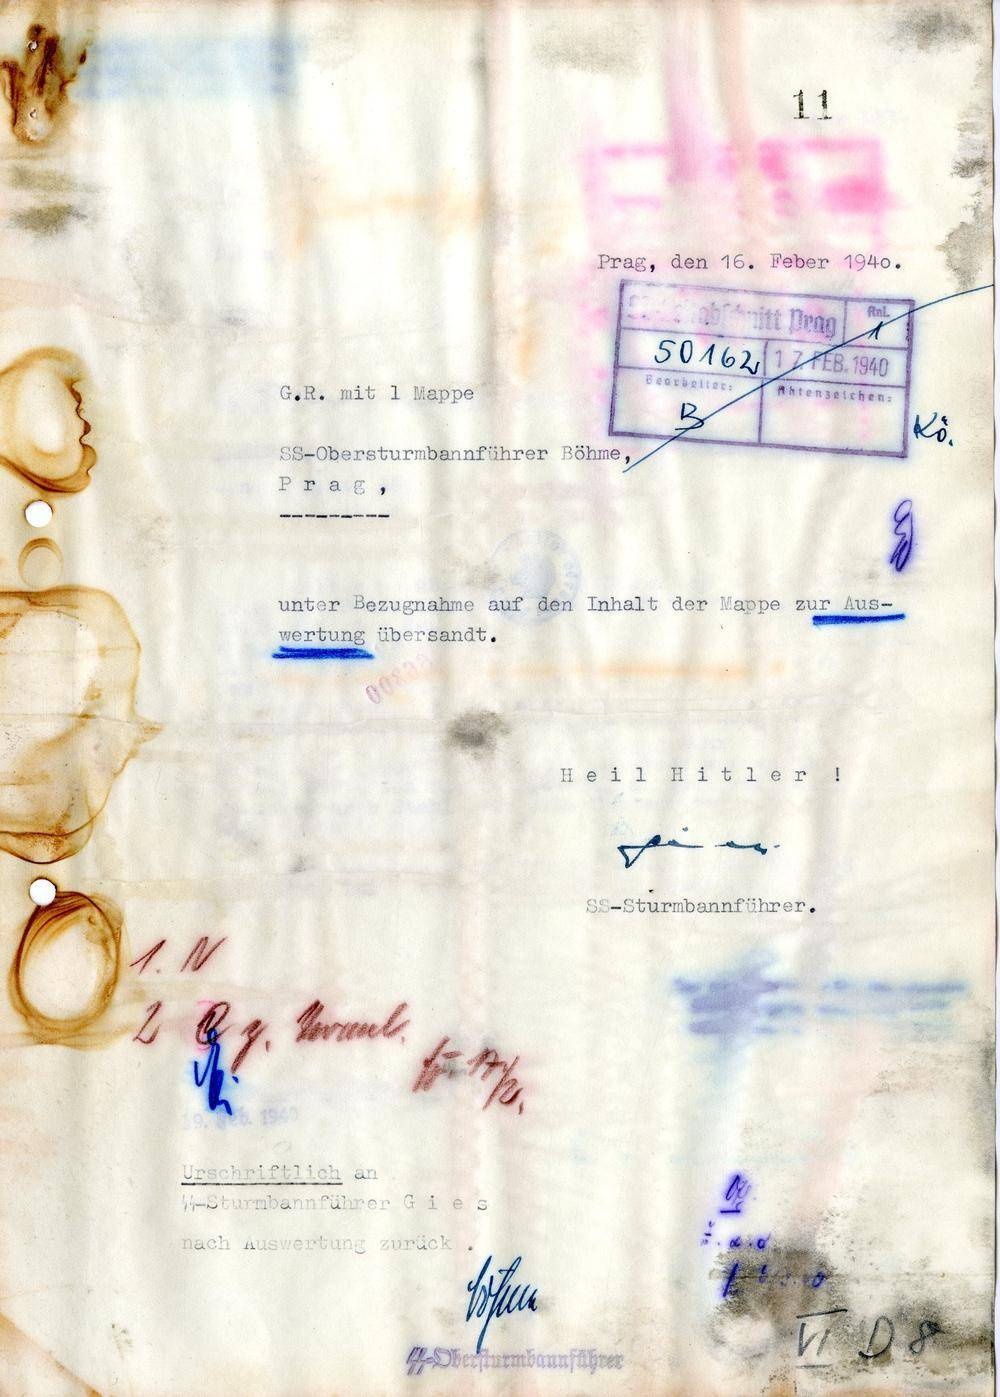 11
Prag, den 16. Feber 1940.
Prag
Anl.
1
50162
17. FEB. 1940
Bearbeiter:
Aktenzeichen:
B
Kö.
G.R. mit 1 Mappe
SS-Obersturmbannführer Böhme,
P r a g ,
--------
unter Bezugnahme auf den Inhalt der Mappe zur Aus-
wertung übersandt.
H e i l H i t l e r !
SS-Sturmbannführer.
1. N
2
17/2.
19. Feb. 1940
Urschriftlich an
SS-Sturmbannführer G i e s
nach Auswertung zurück .
Böhme
SS-Obersturmbannführer
VI D 8